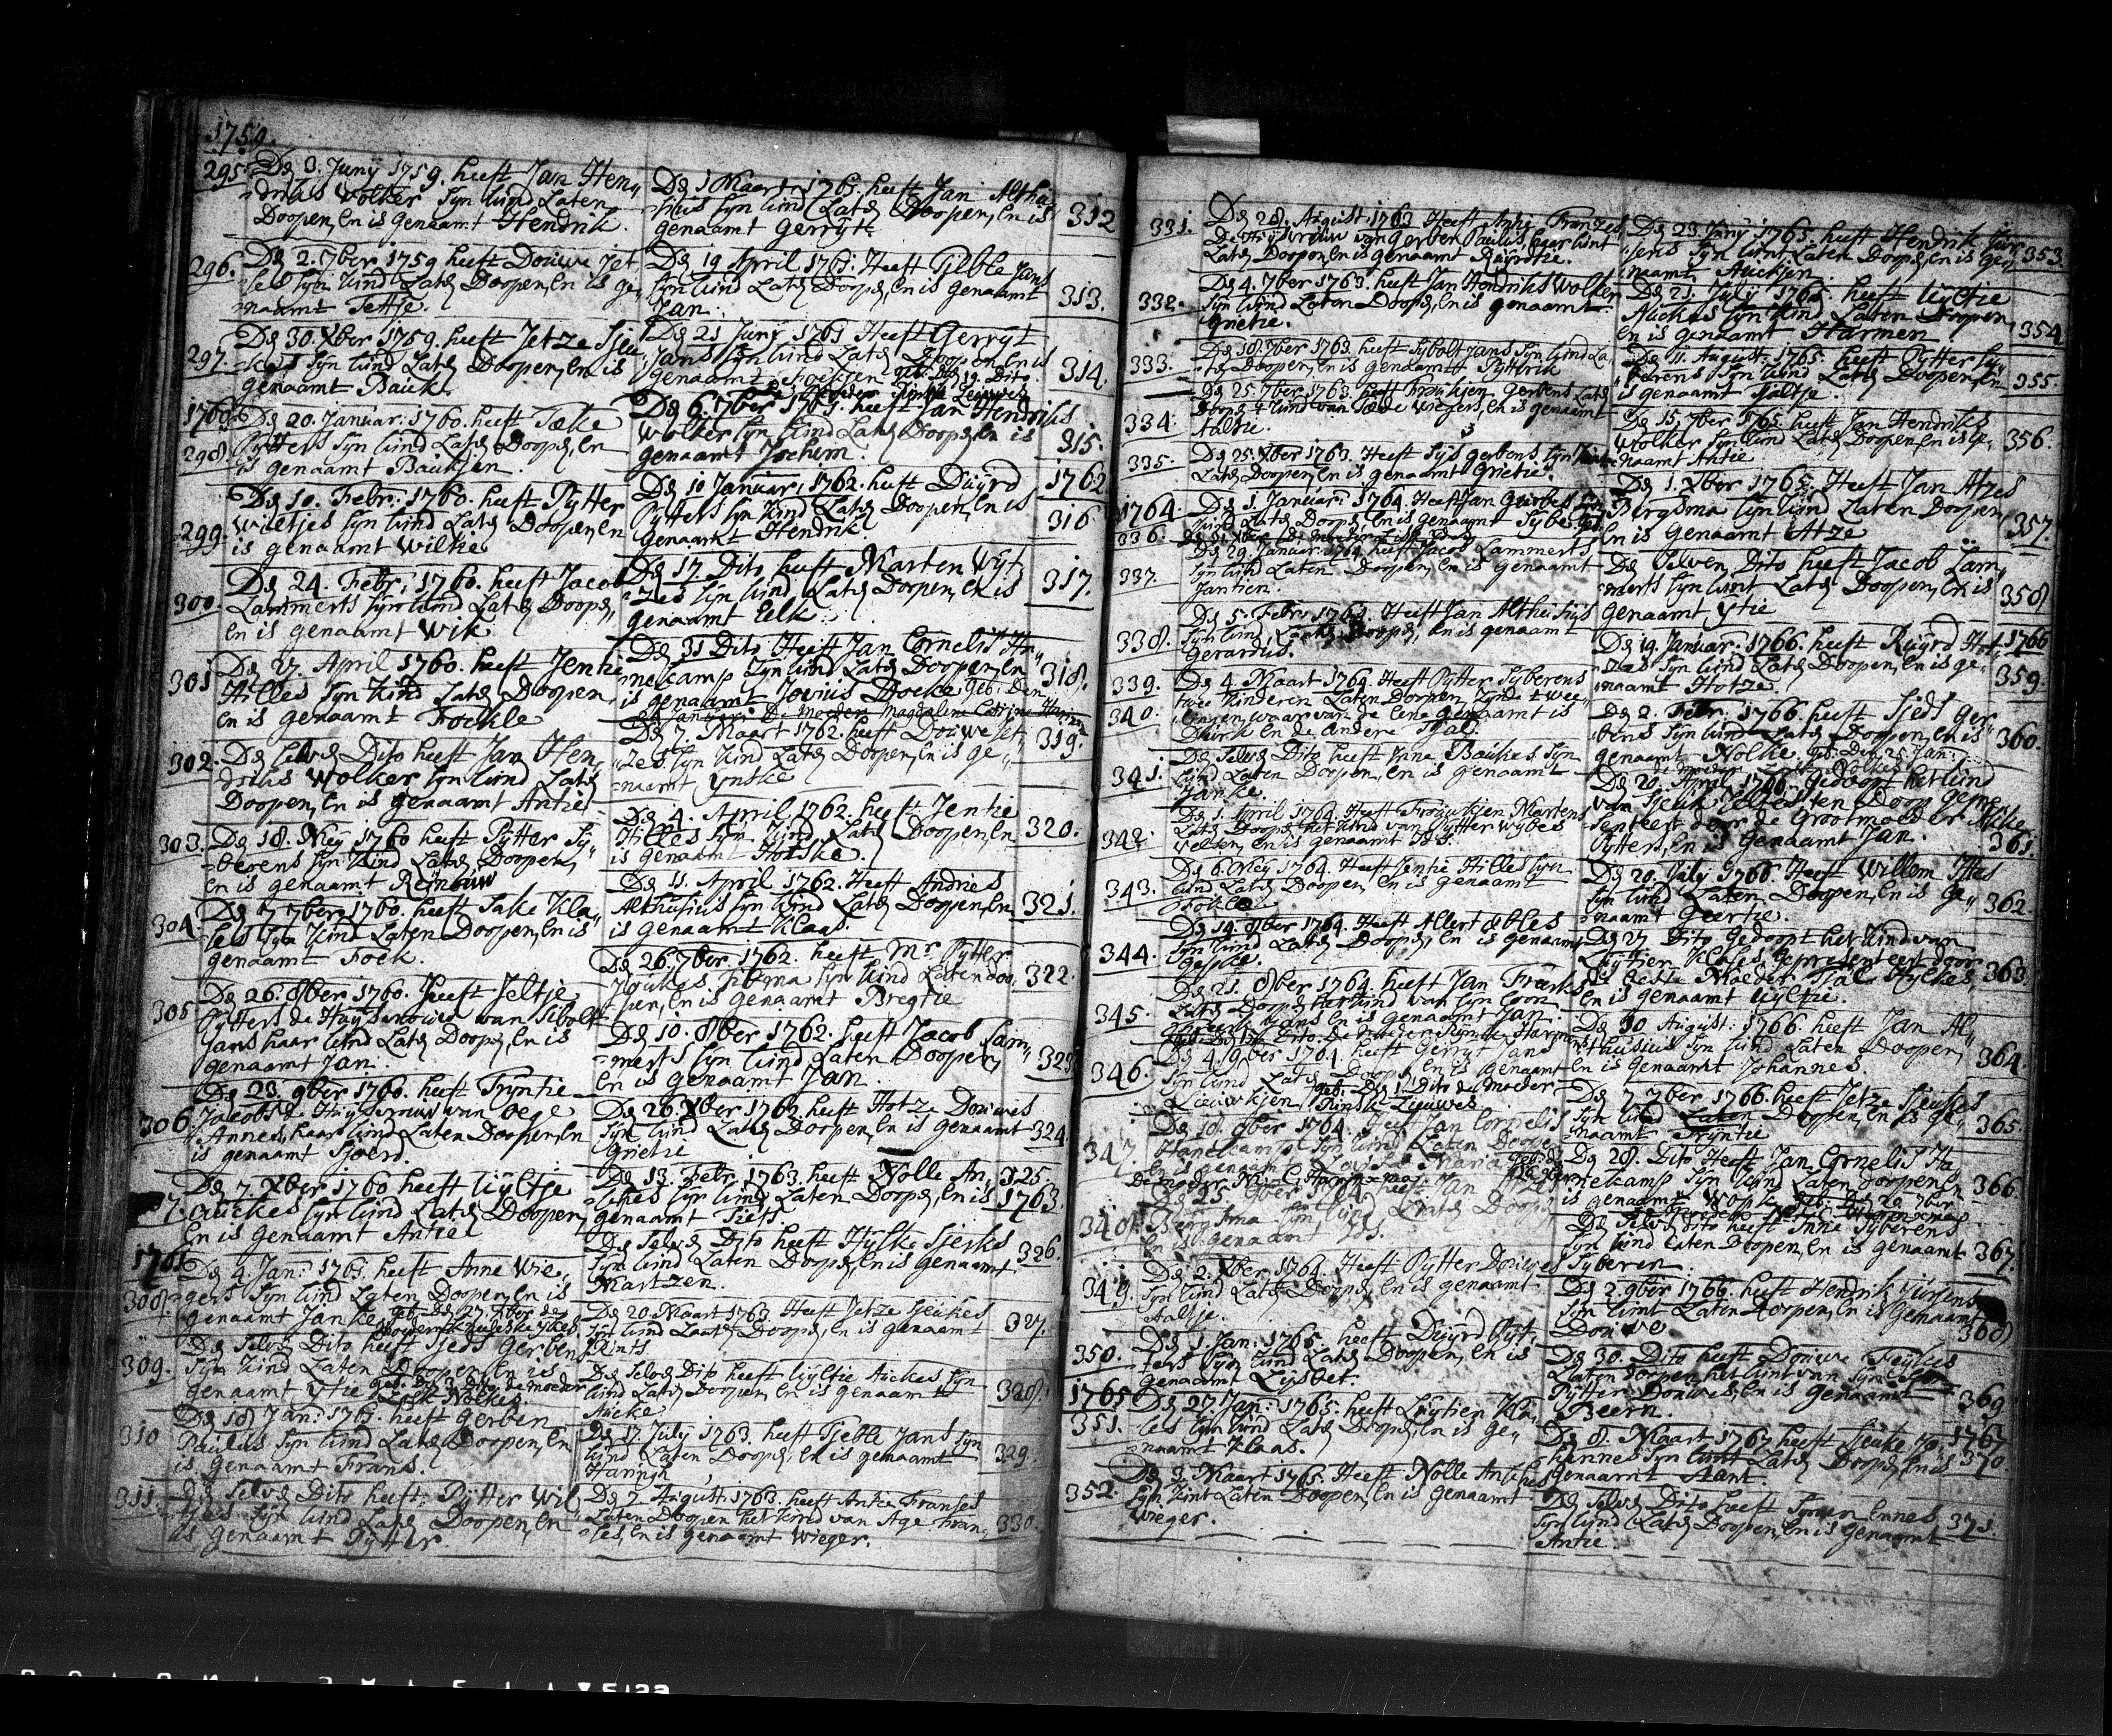 1759.
295. Dẽ 3. Junÿ 1759. heeft Jan Hen„
„driks Wolker Syn kind Laten
Doopen, En is Genaamt Hendrik.
296. Dẽ 2. 7ber 1759 heeft Douwe Jet
„ses Syn Kind Latẽ Doopen, En is ge„
„naamt Tettje.
297. Dẽ 30. Xber 1759. heeft Jetze Sjeu
„kes Syn kind Latẽ Doopen, En is
genaamt Bauk.
1760. Dẽ 20. Januar: 1760. heeft Tæke
298 Pÿtters Syn kind Latẽ Doopẽ, En
is genaamt Baukjen.
Dẽ 10. Febr: 1760. heeft Pÿtter
299. Wiltjes Syn kind Latẽ Doopen, En
is genaamt Wiltie
Dẽ 24. Febr: 1760. heeft Jacob
300. Lammerts Syn kind Latẽ Doopẽ,
En is genaamt Wik.
301 Dẽ 27. April 1760. heeft Jentie
Hilles Syn Kind Latẽ Doopen,
En is genaamt Fockle
302. Dẽ Selvẽ Dito heeft Jan Hen
driks Wolker Syn kind Latẽ
Doopen, En is genaamt Antie
303. Dẽ 18. Meÿ 1760 heeft Pÿtter Sÿ„
„berens Syn Kind Latẽ Doopen,
En is genaamt Reinouw
304. Dẽ 7. 7ber 1760. heeft Take Kla„
ses Syn Kind Laten Doopen, En is
genaamt Foek.
305 Dẽ 26. 8ber 1760. heeft Jeltje
Pÿtters de Huÿsvrouw van Sibolt
Jans haar kind Latẽ Doopẽ, En is
genaamt Jan.
Dẽ 23. 9ber 1760. heeft Trÿntie
306. Jacobs de Huÿsvrouw van Oege
Annes, haar kind Laten Doopen, En
is genaamt Sjoerd.
Dẽ 7. Xber 1760 heeft Uÿltje
7. Auckes Syn kind Latẽ Doopen,
En is Genaamt Antie
1761 Dẽ 4 Jan: 1761. heeft Anne Wie„
308. gers Syn kind Laten Doopen, En is
genaamt Janke. geb: Dẽ 27. Xber de
Dẽ Selvẽ Dito heeft Sjeds Gerben
309. Syn kind Laten Doopen, En is
genaamt Ytie. geb: de moeder
Nolkes.
Dẽ 18 Jan: 1761. heeft Gerben
310 Paulus Syn kind Latẽ Doopen, En
is Genaamt Frans.
311. Dẽ Selvẽ Dito heeft Pÿtter Wil„
tjes Syn kind Latẽ Doopen, En
is genaamt Pÿtter
Dẽ 1 Maart 1761. heeft Jan Althu„
„sius Syn kind Latẽ Doopen, En is 312
genaamt Gerrÿt.
Dẽ 19 April 1761. Heeft Tjebbe Jans
Syn kind Latẽ Doopẽ, En is genaamt 313.
Jan.
Dẽ 21 Junÿ 1761 Heeft Gerrÿt
Jans Syn kind Latẽ Doopen En is
genaamt Foekjen geb: Dẽ 19. Dito. 314.
Dẽ 6. 7ber 1761. heeft Jan Hendriks
Wolker Syn kind Latẽ Doopẽ, En is 315.
genaamt Jochem.
Dẽ 10 Januar: 1762. heeft Duÿrd 1762
Pÿtters Syn kind Latẽ Doopen, En is 316
Genaamt Hendrik.
Dẽ 17 Dito heeft Marten Wÿt„
„zes Syn kind Latẽ Doopen, En is 317.
genaamt Eelk.
Dẽ 31 Dito Heeft Jan Cornelis Ha„
„nekamp Syn kind Latẽ Doopen, En 318.
is genaamt Jovius Doeke Geb: Den
Januari De Moeder Magdalena Catrina
Dẽ 7. Maart 1762. heeft Douwe Jet„ 319.
„zes Syn Kind Latẽ Doopen, En is ge„
„naamt Ynske
Dẽ 4. April 1762. heeft Jentie
Hilles Syn Kind Latẽ Doopen, En 320.
is genaamt Hotske.
Dẽ 11. April 1762. Heeft Andries
Althusius Syn kind Latẽ Doopen, En 321.
is genaamt Klaas.
Dẽ 26. 7ber 1762. heeft Mr. Pÿtter
Foukes Syn Kind Laten doo„ 322.
„pen, En is genaamt Bregtie
Dẽ 10. 8ber 1762. heeft Jacob Lam„
„merts Syn kind Laten Doopen, 323
En is genaamt Jan.
Dẽ 26. Xber 1762. heeft Hotze Douwes
Syn kind Latẽ Doopen, En is genaamt 324.
Grietie
Dẽ 13. Febr: 1763. heeft Nolle An„ 325.
„skes Syn kind Laten Doopẽ, En is 1763.
genaamt Siets.
Dẽ Selvẽ Dito heeft Hÿlke Sjerks 326.
Syn kind Laten Doopẽ, En is genaamt
Martzen.
Dẽ 20. Maart 1763. Heeft Jetze Sjeukes
Syn kind Laatẽ Doopẽ, En is genaamt 327.
Rints
Dẽ Selvẽ Dito heeft Uÿltie Auckes Syn
kind Latẽ Doopen, En is genaamt 328.
Aucke
Dẽ 17. Julÿ 1763. heeft Tjebbe Jans Syn
kind Laten Doopẽ, En is genaamt 329.
Harmen
Dẽ 7. August: 1763. heeft Antie Franses
Laten Doopen het kind van Age Fran„ 330.
„ses, En is genaamt Wieger.
331. Dẽ 28. August 1763 Heeft Antie Franzes,
De Huÿsvrouw van Gerben Paulus, haar kint
Latẽ Doopen, En is genaamt Ruÿrdtie.
Dẽ 4. 7ber 1763. heeft Jan Hendriks Wolker
332. Syn kind Laten Doopẽ, En is genaamt
Grietie.
Dẽ 18. 7ber 1763. heeft Sÿbolt Jans Syn kind La„
333. „tẽ Doopen, En is genaamt Pÿttrik
Dẽ 25. 7ber 1763. heeft Froukjen Gerbens Latẽ
334. Doopẽ 't kind van Wiegers, En is genaamt
Aaltie.
335. Dẽ 25. Xber 1763. Heeft Sÿds gerbens Syn kint
Latẽ Doopen, En is genaamt Grietie.
1764. Dẽ 1. Januar: 1764. Heeft Jan Gerbens Syn
kind Latẽ Doopẽ, En is genaamt Sÿbe. Geb:
336. Dẽ 31. Xber
Dẽ 29. Januar: 1764. heeft Jacob Lammerts
337. Syn kind Laten Doopen, En is genaamt
Jantien.
Dẽ 5. Febr: 1764. Heeft Jan Althusius
338. Syn kind Latẽ Doopẽ, En is genaamt
Gerardus.
339. Dẽ 4. Maart 1764. Heeft Pÿtter Sÿberens
twee Kinderen Laten Doopen, Zÿnde twee„
340. lingen, waar van de Eene genaamt is
Durk En de Andere Tjal.
Dẽ Selvẽ Dito heeft Anne Baukes Syn
341. kind Laten Doopen, En is genaamt
Janke.
Dẽ 1. April 1764. Heeft Froukjen Martens
342. Latẽ Doopẽ het kind van Pÿtter Wÿbes
Welsen, En is genaamt Ids.
Dẽ 6. Meÿ 1764. Heeft Jentie Hilles Syn
343. kind Latẽ Doopen, En is genaamt
Fokle.
Dẽ 14. 8ber 1764. Heeft Allert Ebbles
344. Syn kind Latẽ Doopẽ, En is genaamt
Gepke.
Dẽ 21. 8ber 1764. heeft Jan Freerks
345. Latẽ Doopẽ het kind van Syn Soon
Freerk Jans En is genaamt Jan.
Dẽ 4. 9ber 1764. heeft Gerrÿt Jans
346. Syn kind Latẽ Doopẽ, En is genaamt
Lieuwkjen, geb: Dẽ 1. Dito de moeder
Rinske Lieuwes
Dẽ 18. 9ber 1764. Heeft Jan Cornelis
347. Hanekamp Syn kind Laten Doopen
En is genaamt Lovisa Maria
Dẽ 25 9ber 1764. heeft Jan Atzes
348. Bergsma Syn kind Latẽ Doopẽ
En is genaamt Ids.
Dẽ 2. Xber 1764. Heeft Pÿtter Douwes
349. Syn kind Latẽ Doopẽ, En is genaamt
Aaltje.
Dẽ 1. Jan: 1765. heeft Duÿrd Pÿt„
350. ters Syn kind Latẽ Doopen, En is
genaamt Lÿsbet.
1765 Dẽ 27. Jan: 1765. heeft Luÿtien Kla„
351. ses Syn kind Latẽ Doopẽ, En is ge„
„naamt Klaas.
Dẽ 3. Maart 1765. Heeft Nolle Anskes
352. Syn kint Laten Doopen, En is genaamt
Wieger.
Dẽ 23. Junÿ 1765. heeft Hendrik Jur„
„jens Syn kint Laten Doopẽ, En is ge„ 353.
„naamt Auckjen.
Dẽ 21. Julÿ 1765. heeft Uÿltie
Auckes Syn kind Laten Doopen,
En is genaamt Harmen. 354
Dẽ 11. August: 1765. heeft Pÿtter Sÿ„
„berens Syn kind Latẽ Doopen, En 355.
is genaamt Tjaltje.
Dẽ 15. 7ber 1765. heeft Jan Hendriks
Wolker Syn kind Latẽ Doopen, En is ge„ 356.
naamt Antie
Dẽ 1. Xber 1765. Heeft Jan Atzes
Bergsma Syn kind Laten Doopen, 357.
En is Genaamt Atze
Dẽ Selven Dito heeft Jacob Lam„
„merts Syn kint Latẽ Doopen, En is 358
genaamt Ytie
Dẽ 19. Januar: 1766. heeft Ruÿrd Hot„ 1766
„zes Syn kind Latẽ Doopen, En is ge„ 359.
„naamt Hotze.
Dẽ 2. Febr: 1766. heeft Sjeds Ger„
„bens Syn kind Latẽ Doopen, En is 360.
genaamt Nolke. geb: Den 25. Jan:
de moeder Nolkes
Dẽ 20. April 1766. Gedoopt het kind
van Sjeuk Jeltes ten Doop gepre„
„senteert door de Grootmoeder Auke
Pÿtters, En is Genaamt Jan. 361.
Dẽ 20. Julÿ 1766. Heeft Willem Ittes
Syn kind Laten Doopen, En is ge„ 362
„naamt Geertie.
Dẽ 27 Dito Gedoopt het kind van
Luÿtien Klases, gepresenteert door
de Beste Moeder Tjal Hÿlkes, 363
En is genaamt Uÿltie.
Dẽ 30 August: 1766. heeft Jan Al„
„thusius Syn kind Laten Doopen, 364.
En is Genaamt Johannes.
Dẽ 7. 7ber 1766. heeft Jetze Sjeukes
Syn kind Laten Doopen, En is ge„ 365.
„naamt Trÿntie
Dẽ 28. Dito Heeft Jan Cornelis Ha„
„nekamp Syn kind Laten doopen En 366.
is genaamt Wopk. geb: Dẽ 20. 7ber
Dẽ Selvẽ Dito heeft Inne Sÿberens
Syn kind Laten Doopen, En is genaamt 367.
Sÿberen.
Dẽ 2. 9ber 1766. heeft Hendrik Jurjens
Syn kint Laten Doopen, En is Genaamt
Douwe 368
Dẽ 30. Dito heeft Douwe Feÿkes
Laten doopen het kint van Syn Soon
Pÿtter Douwes, En is Genaamt 369
Beern.
Dẽ 8. Maart 1767 heeft Sjeuke Jo„ 1767
hannes Syn kint Latẽ Doopẽ, En is 370.
genaamt Aant.
Dẽ Selvẽ Dito heeft Symen Ennes
Syn kind Latẽ Doopen, En is Genaamt 371.
Antie.